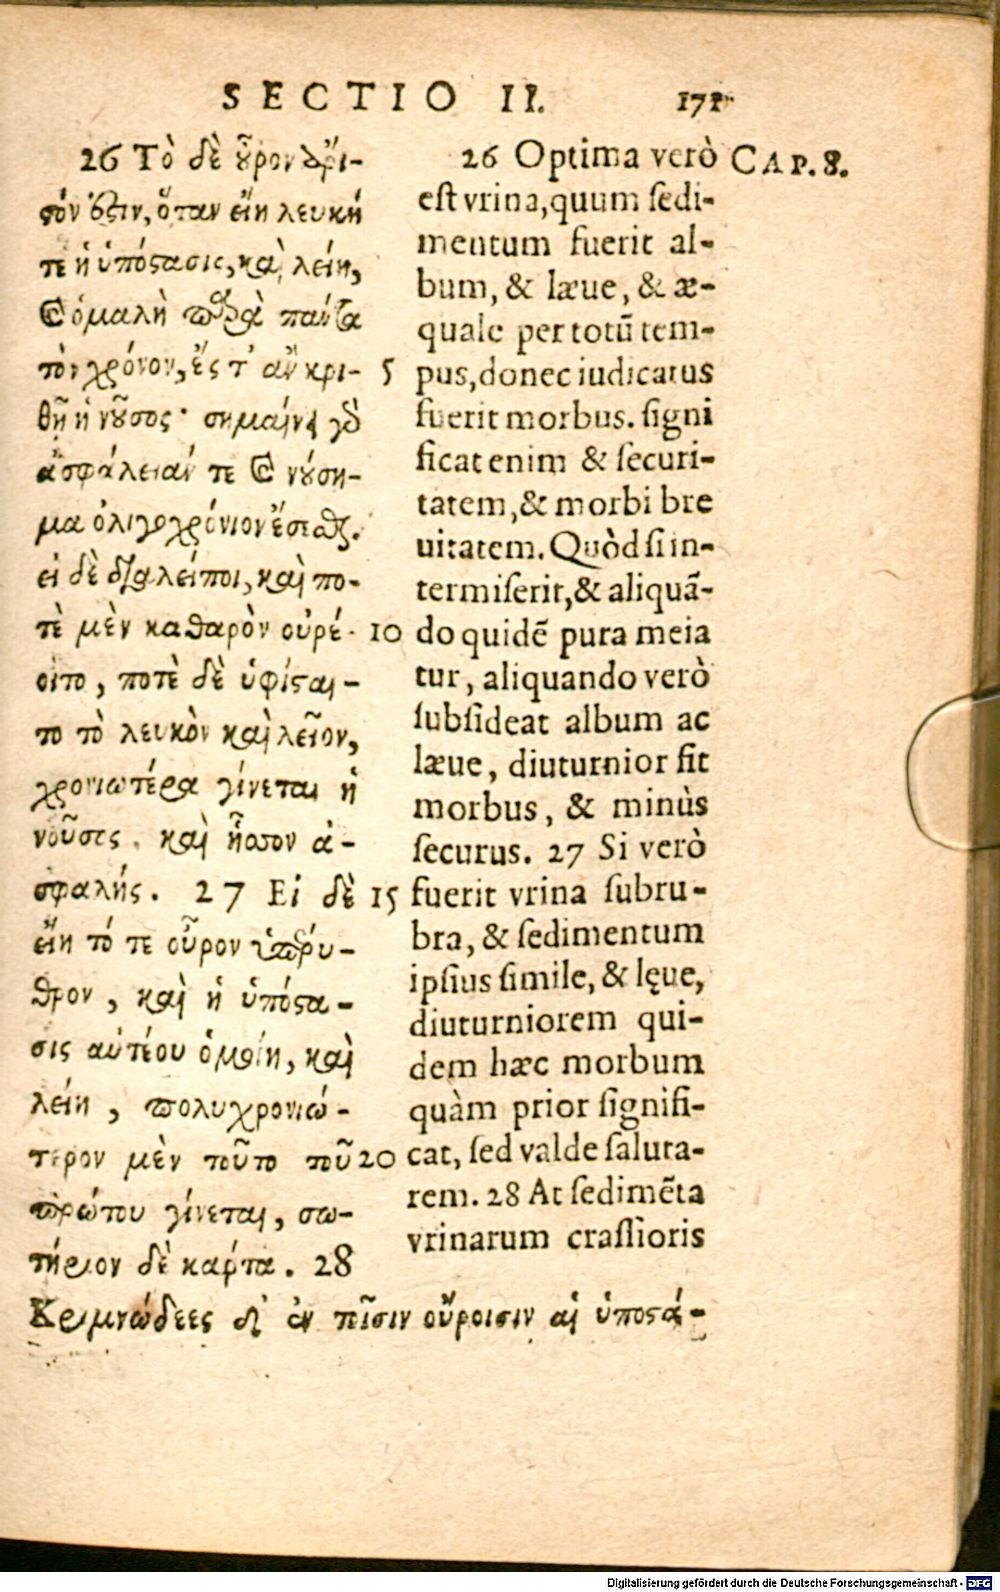 SECTIO II. 171
26 Τὸ δὲ οὖρον ἄρι-
στόν ἐστιν, ὅταν εἴη λευκή
τε ἡ ὑπόστασις, καὶ λείη,
καὶ ὁμαλὴ παρὰ πάντα
τὸν χρόνον, ἔς τ' ἂν κρι-
θῇ ἡ νοῦσος· σημαίνει γὸ
ἀσφάλειάν τε καὶ νούση-
μα ὀλιγοχρόνιον ἔσεσθαι.
εἰ δὲ διαλείποι, καὶ πο-
τὲ μὲν καθαρὸν οὐρέ-
οιτο, ποτὲ δὲ ὑφίσται-
το τὸ λευκὸν καὶ λεῖον,
χρονιωτέρα γίνεται ἡ
νοῦσος, καὶ ἧσσον ἀ-
σφαλής. 27 Εἰ δὲ
εἴη τό τε οὖρον ὑπέρυ-
θρον, καὶ ἡ ὑπόστα-
σις αὐτέου ὁμοίη, καὶ
λείη, πολυχρονιώ-
τερον μὲν τοῦτο τοῦ
πρώτου γίνεται, σω-
τήριον δὲ κάρτα. 28
Κριμνώδεες δ' ἐν τῖσιν οὔροισιν αἱ ὑποστά-
5
10
15
20
26 Optima verò
est vrina, quum sedi-
mentum fuerit al-
bum, & læue, & æ-
quale per totū tem-
pus, donec iudicatus
fuerit morbus. signi
ficat enim & securi-
tatem, & morbi bre
uitatem. Quòd si in-
termiserit, & aliquā-
do quidē pura meia
tur, aliquando verò
subsideat album ac
læue, diuturnior fit
morbus, & minùs
securus. 27 Si verò
fuerit vrina subru-
bra, & sedimentum
ipsius simile, & lęue,
diuturniorem qui-
dem hæc morbum
quàm prior signifi-
cat, sed valde saluta-
rem. 28 At sedimēta
vrinarum crassioris
CAP. 8.
Digitalisierung gefördert durch die Deutsche Forschungsgemeinschaft - DFG